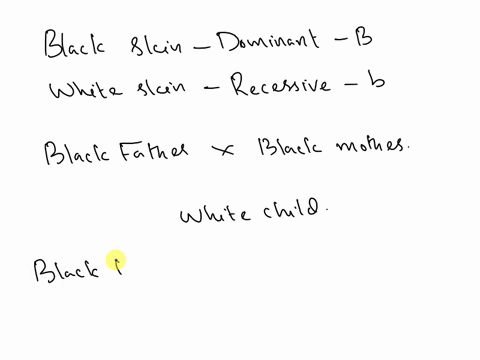 Black skin - Dominant - B
White skin - Recessive - b
Black Father x Black mother.
White child.
Black